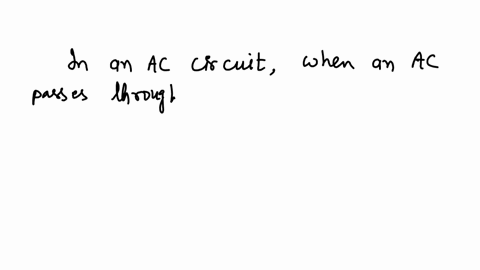 In an AC circuit, when an AC
passes through